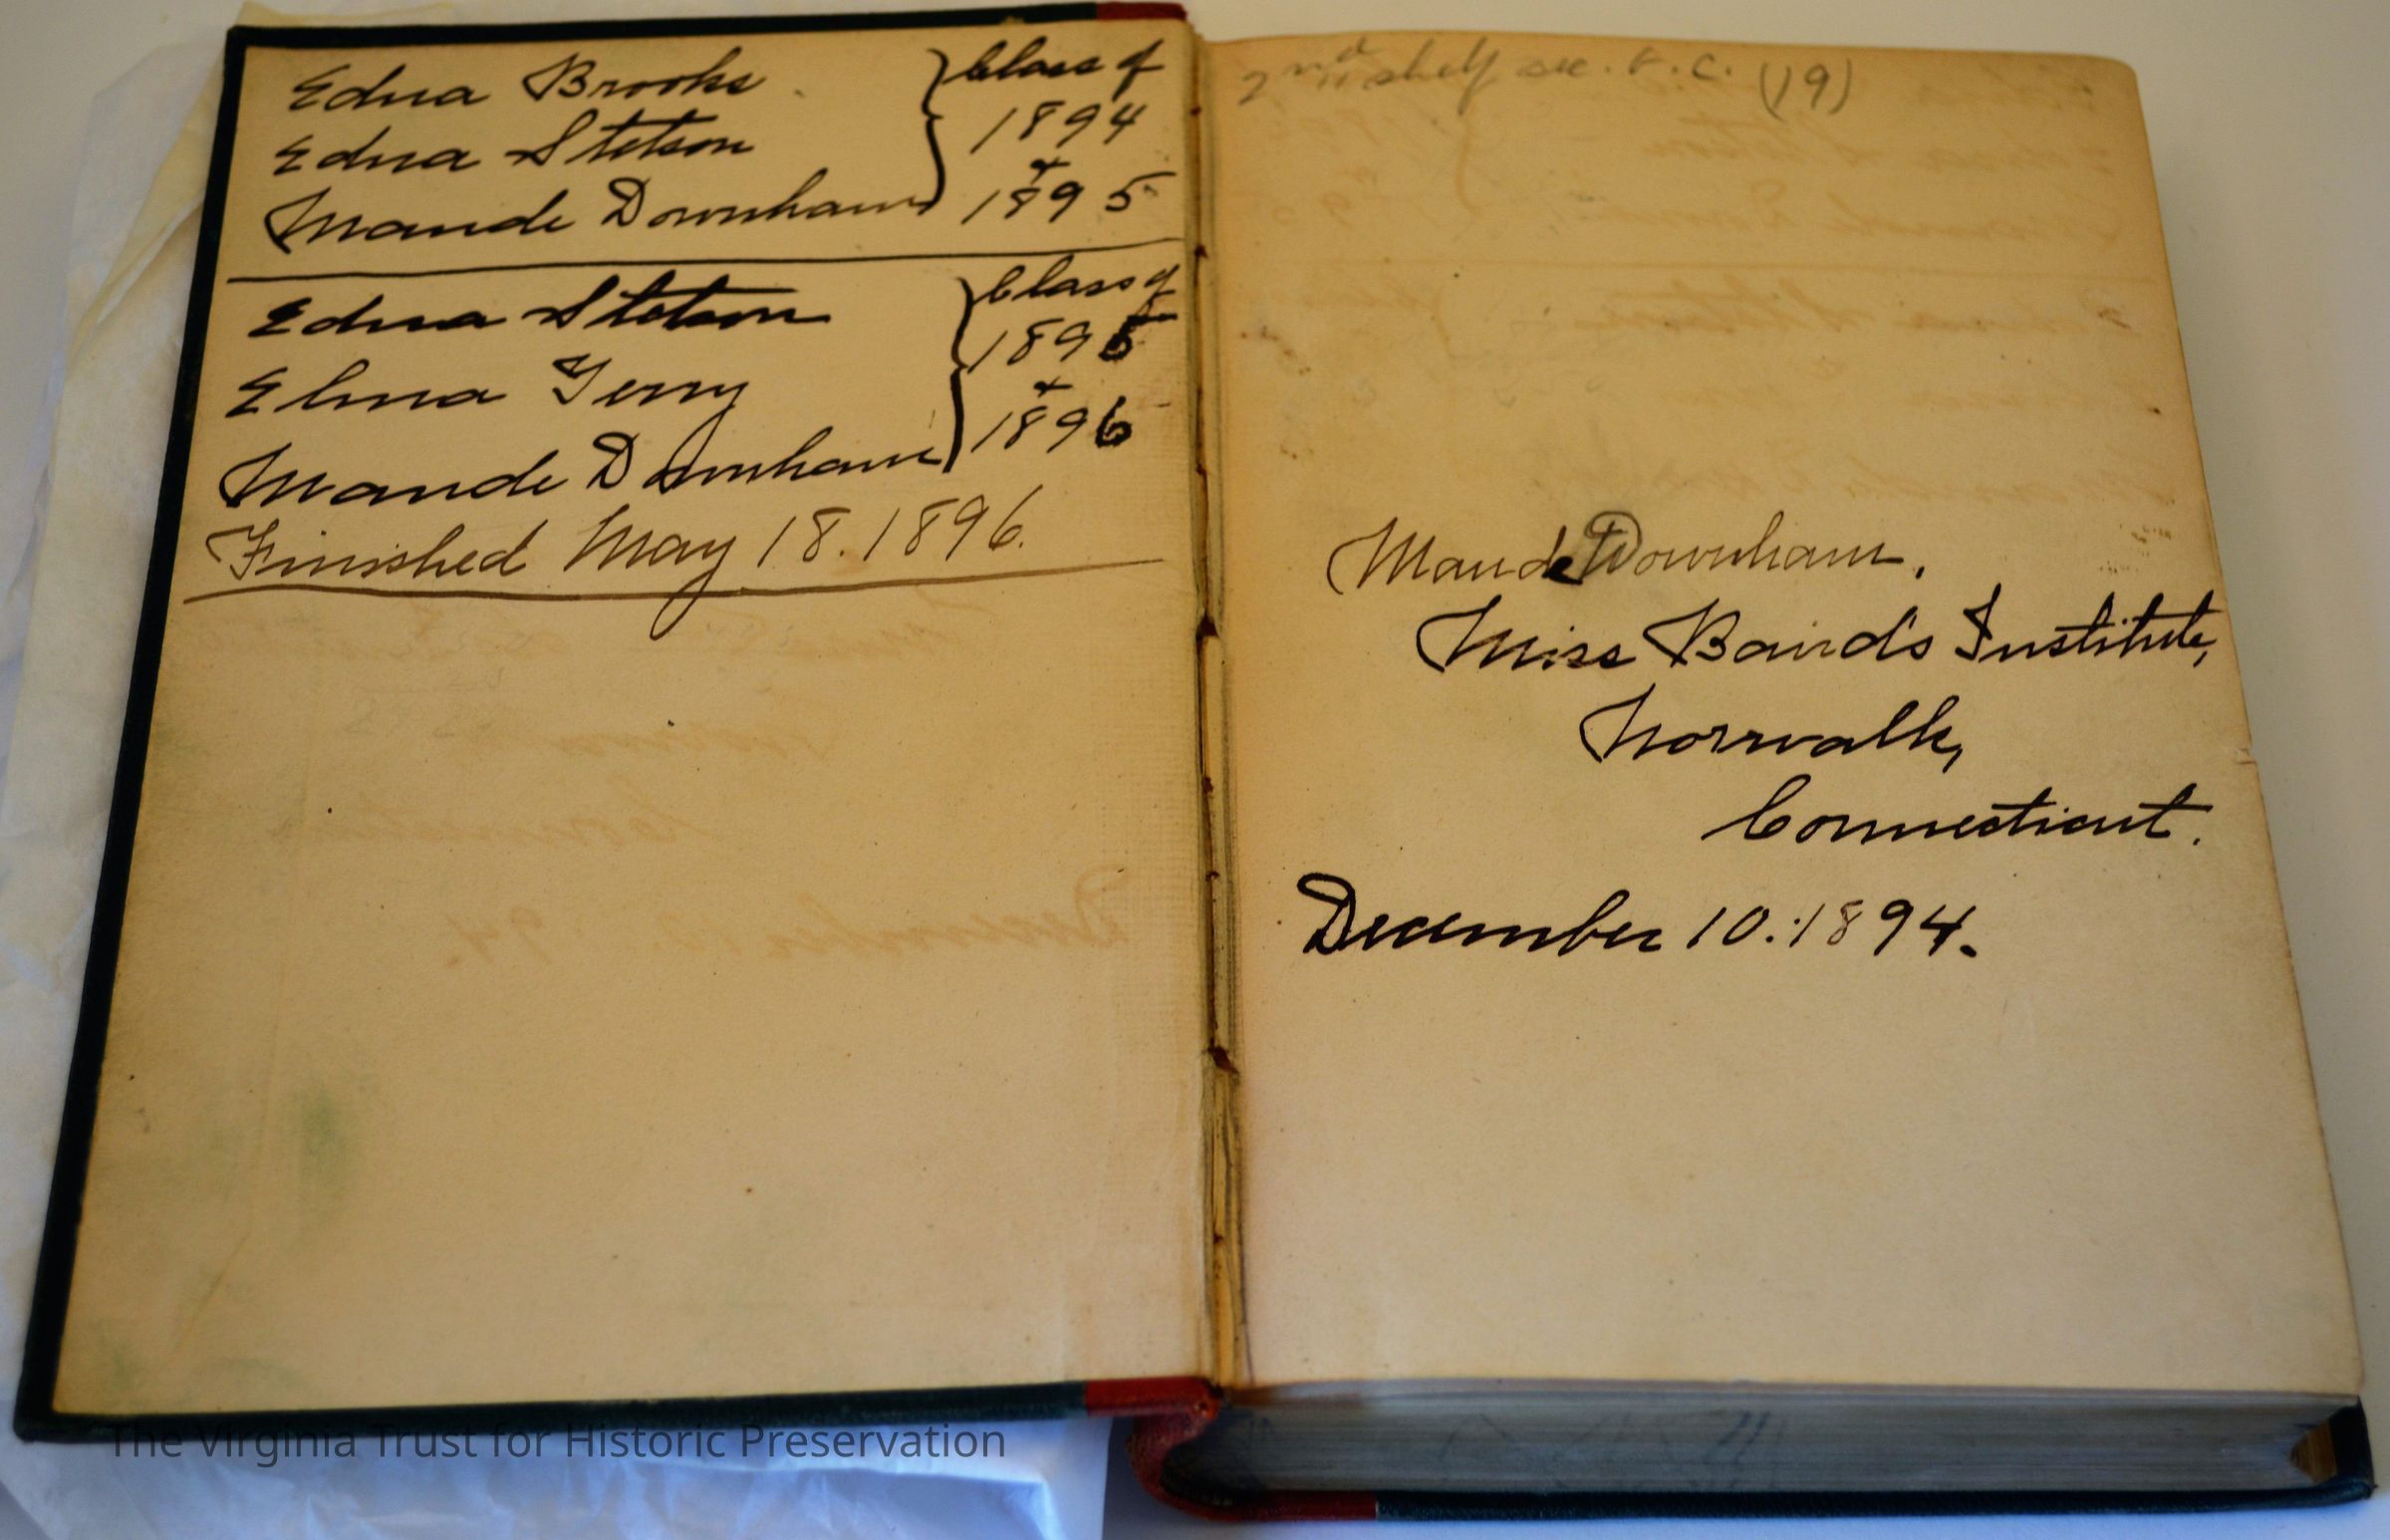 Edna Brooks
Edna Stetson
Maude Downham
Class of
1894
&
1895
Edna Stetson
Elma Gerry
Maude Downham
Class of
1895
&
1896
Finished May 18. 1896.
2nd shelf sec. (19)
Maude Downham.
Miss Baird's Institute,
Norwalk,
Connecticut.
December 10. 1894.
The Virginia Trust for Historic Preservation